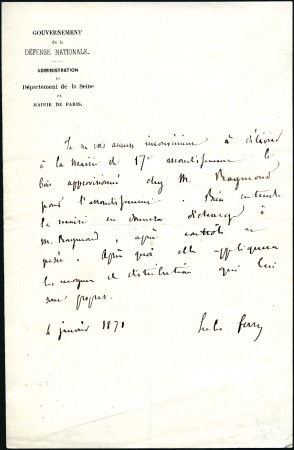 GOUVERNEMENT
de la
DÉFENSE NATIONALE.
ADMINISTRATION
du
Département de la Seine
et
MAIRIE DE PARIS.
Je ne vois aucun inconvénient à délivrer
à la mairie du 17e arrondissement le
bois approvisionné chez M. Raymond
pour l'arrondissement. Bien entendu
la mairie en donnera décharge à
M. Raymond, après contrôle et
pesée. Après quoi elle appliquera
les moyens de distribution qui lui
sont propres.
4 janvier 1871
Jules Ferry